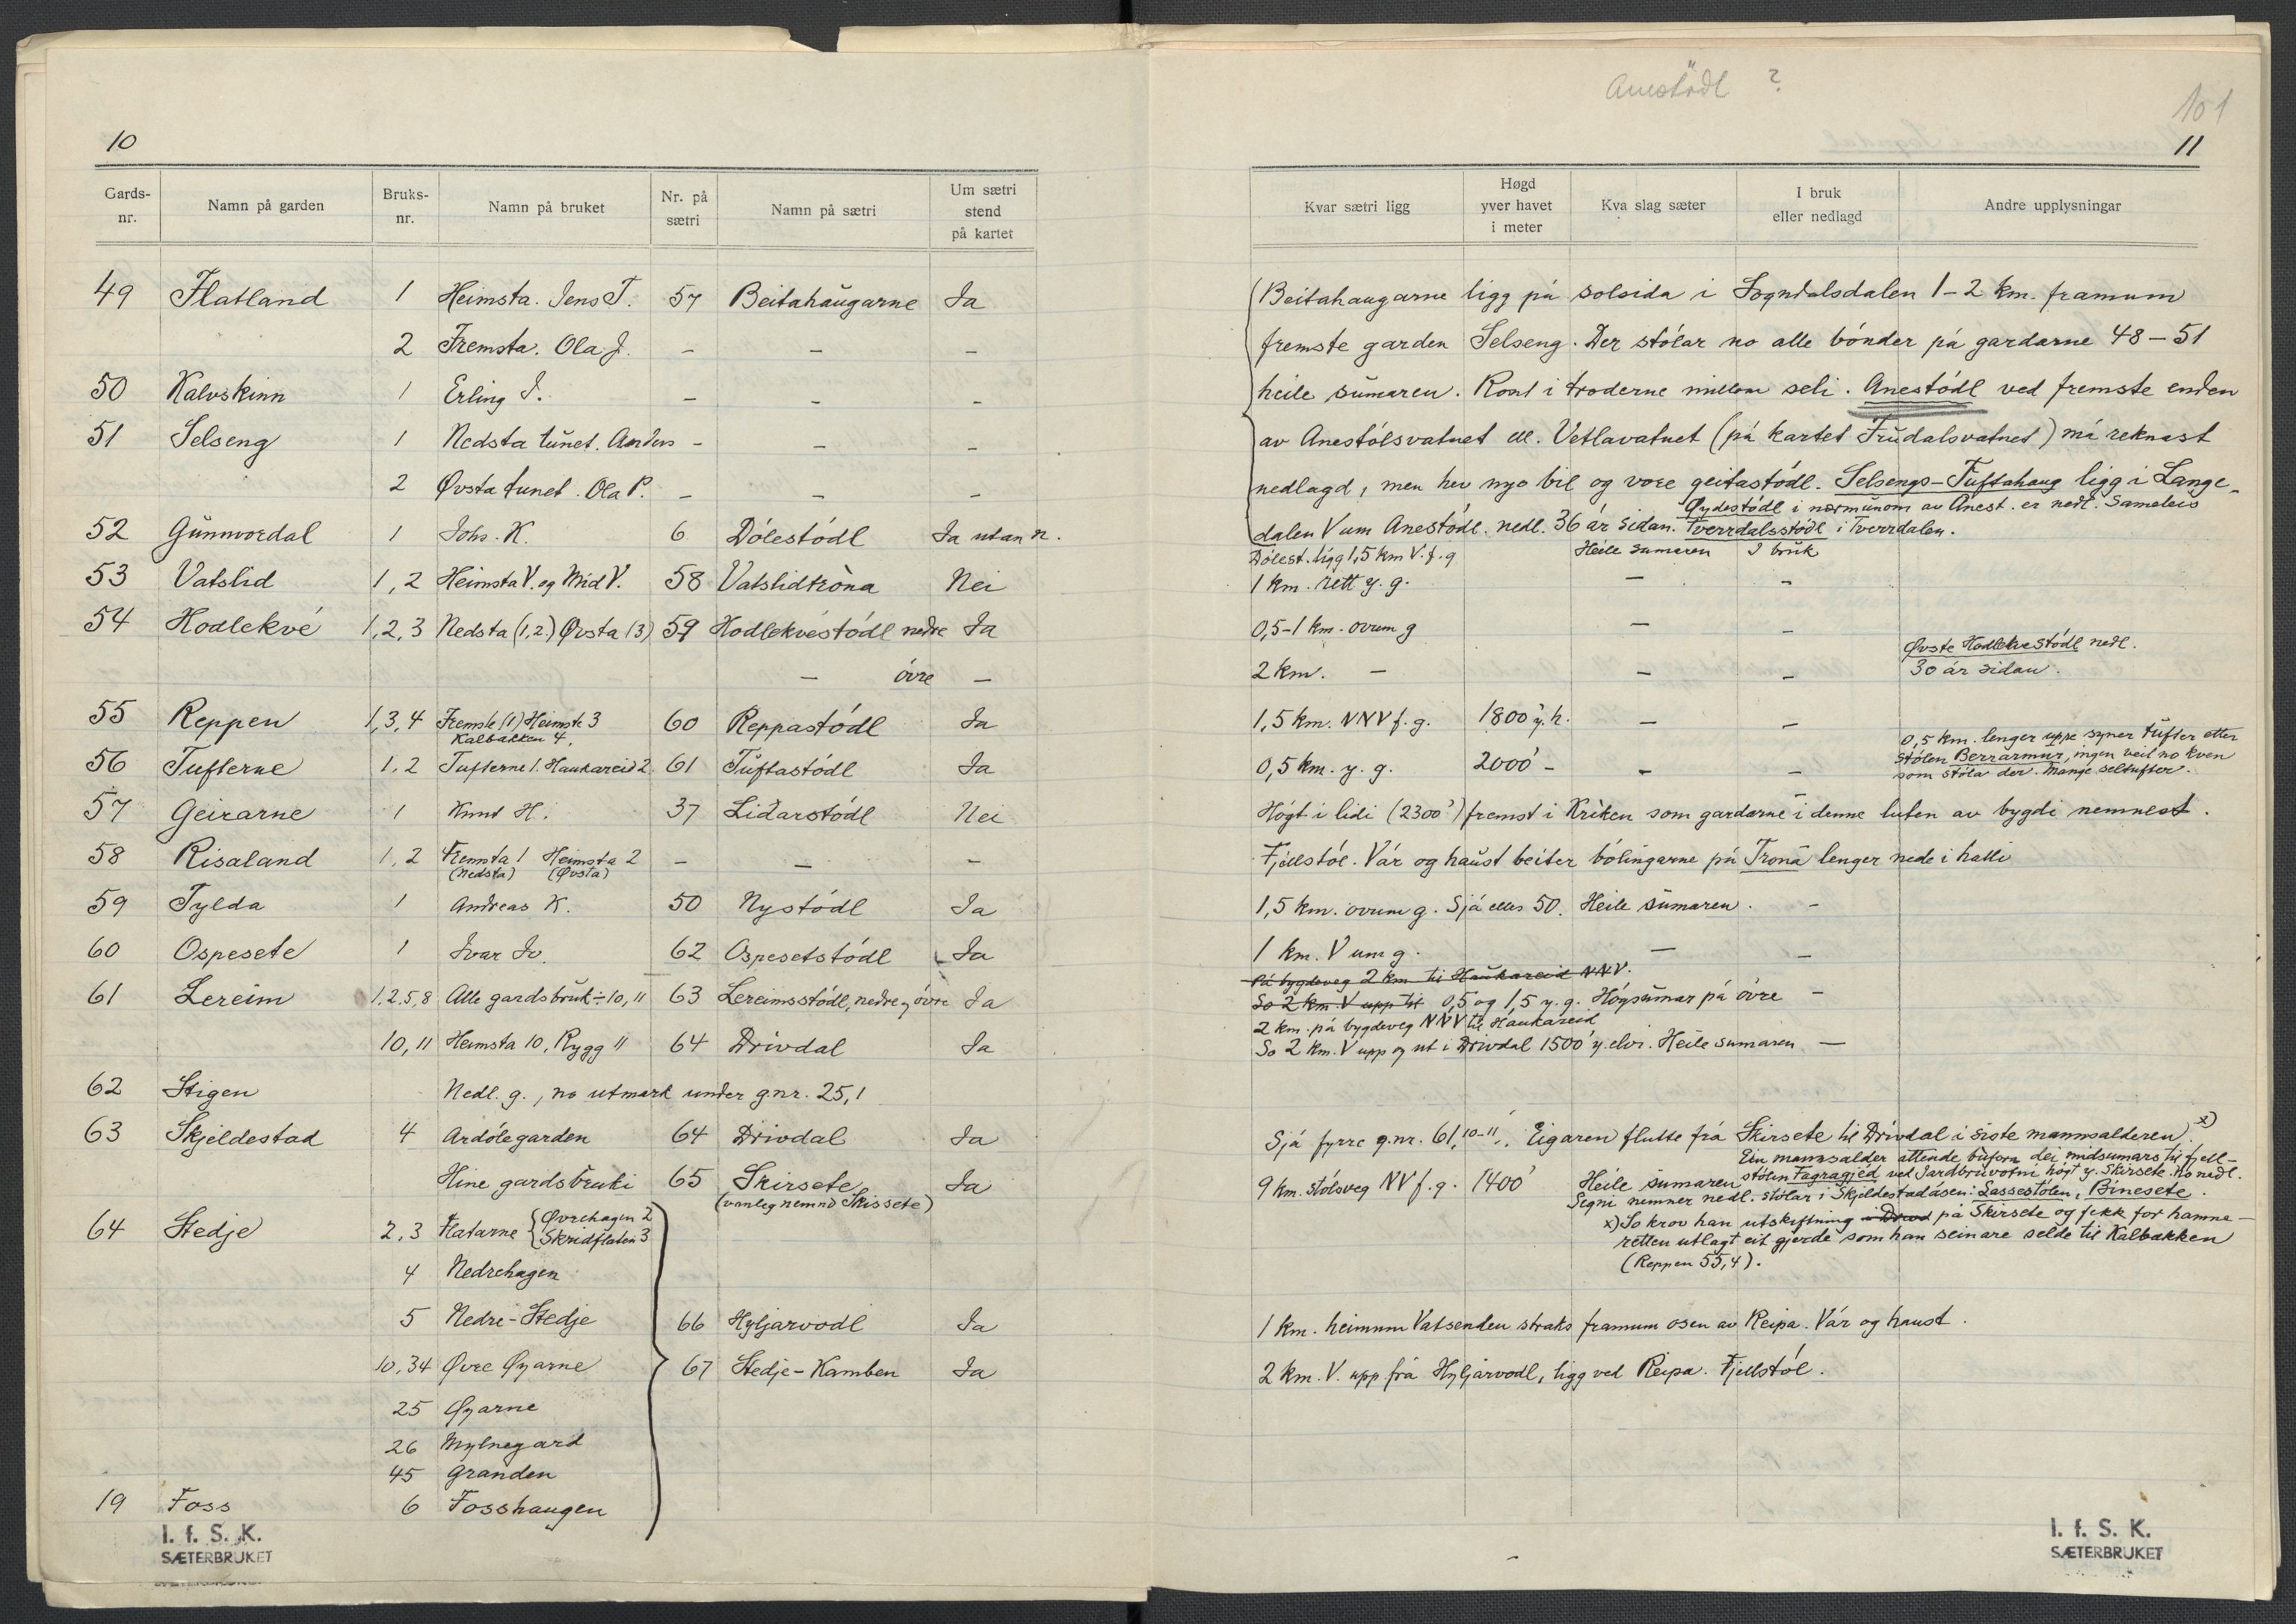 10
Gards-nr. Namn på garden Bruks-nr. Namn på bruket Nr. på sætri Namn på sætri Um sætri stend på kartet
49 Flatland 1 Heimsta. Jens T. 57 Beitahaugarne Ja
2 Fremsta. Ola J. – – –
50 Kalvskinn 1 Erling J. – – –
51 Selseng 1 Nedsta tunet. Anders – – –
2 Øvsta tunet. Ola P. – – –
52 Gunnvordal 1 Johs. K. 6 Dólestódl Ja utan n.
53 Vatslid 1, 2 Heimsta V. og Mid V. 58 Vatslidtróna Nei
54 Hodlekvé 1, 2, 3 Nedsta (1,2) Øvsta (3) 59 Hodlekvéstódl nedre Ja
– óvre –
55 Reppen 1, 3, 4 Fremste (1) Heimste 3 60 Reppastódl Ja
Kalbakken 4.
56 Tufterne 1. 2 Tufterne 1. Haukareid 2. 61 Tuftastódl Ja
57 Geirarne 1 Knut H. 37 Lidarstódl Nei
58 Risaland 1, 2 Fremsta 1 Heimsta 2 – – –
(Nedsta) (Øvsta)
59 Tylda 1 Andreas K. 50 Nystódl Ja
60 Ospesete 1 Ivar Iv. 62 Ospesetstódl Ja
61 Lereim 1,2,5,8 Alle gardsbruk ÷ 10, 11 63 Lereimsstódl, nedre og óvre Ja
10, 11 Heimsta 10, Rygg 11 64 Drivdal Ja
62 Stigen Nedl. g., no utmark under g.nr. 25,1
63 Skjeldestad 4 Ardólegarden 64 Drivdal Ja
Hine gardsbruki 65 Skirsete Ja
(vanleg nemnd Skissete)
64 Stedje 2, 3 Flatarne { Øvrehagen 2
Skridflaten 3
4 Nedrehagen
5 Nedre-Stedje 66 Hyljarvodl Ja
10, 34 Øvre Øyarne 67 Stedje-Kamben Ja
25 Øyarne
26 Mylnegard
45 Granden
19 Foss 6 Fosshaugen
I. f. S. K.
SÆTERBRUKET
Anestödl ?
101
11
Kvar sætri ligg Høgd yver havet i meter Kva slag sæter I bruk eller nedlagd Andre upplysningar
Beitahaugarne ligg på solsida i Sogndalsdalen 1–2 km. framum
fremste garden Selseng. Der stólar no alle bónder på gardarne 48–51
heile sumaren. Rom i troderne millom seli. Anestódl ved fremste enden
av Anestólsvatnet el. Vetlavatnet (på kartet Frudalsvatnet) má reknast
nedlagd, men hev nyo bil og vore geitastódl. Selsengs-Tuftahaug ligg i Lange-
Øydestódl i nærmunom av Anest. er nedl. Sameleis
dalen V um Anestódl. nedl. 36 ár sidan. Tverrdalsstódl i Tverrdalen.
Dólest. ligg 1,5 km V. f. g Heile sumaren I bruk
1 km. rett y. g. – –
0,5–1 km. ovum g – –
Øvste Hodlekvestódl nedl.
2 km. – – – 30 ár sidan.
1,5 km. NNV f. g. 1800' y. h. – –
0,5 km. lenger uppe syner tufter etter
0,5 km. y. g. 2000' – – – stólen Berrarmur, ingen veit no kven
som stóla der. Mange seltufter.
Hógt i lidi (2300') fremst i Kriken som gardarne i denne luten av bygdi nemnest.
Fjellstól. Vár og haust beiter bólingarne på Trona lenger nede i halli
1,5 km. ovum g. Sjá elles 50. Heile sumaren. –
1 km. V um g. – –
På bygdeveg 2 km til Haukareid NNV.
So 2 km. V upp til 0,5 og 1,5 y. g. Hógsumar på óvre –
2 km. på bygdeveg NNV til Haukareid
So 2 km. V upp og ut i Drivdal 1500' y. elvi. Heile sumaren –
Sjá fyrre g.nr. 61, 10–11. Eigaren flutte frá Skirsete til Drivdal i siste mannsalderen. x)
Ein mannsalder attende bufora dei midsumars til fjell-
9 km. stólsveg NV f. g. 1400' Heile sumaren stólen Fagragjed ved Jardbruvotni hógt y. Skirsete. No nedl.
Segni nemner nedl. stólar i Skjeldestadåsen: Lassestólen, Binesete.
x) So krov han utskiftning i Drivd på Skirsete og fekk for hamne-
retten utlagt eit gjerde som han seinare selde til Kalbakken
(Reppen 55,4).
1 km. heimum Vatsenden straks framum osen av Reipa. Vár og haust.
2 km. V. upp frá Hyljarvodl, ligg ved Reipa. Fjellstól.
I. f. S. K.
SÆTERBRUKET